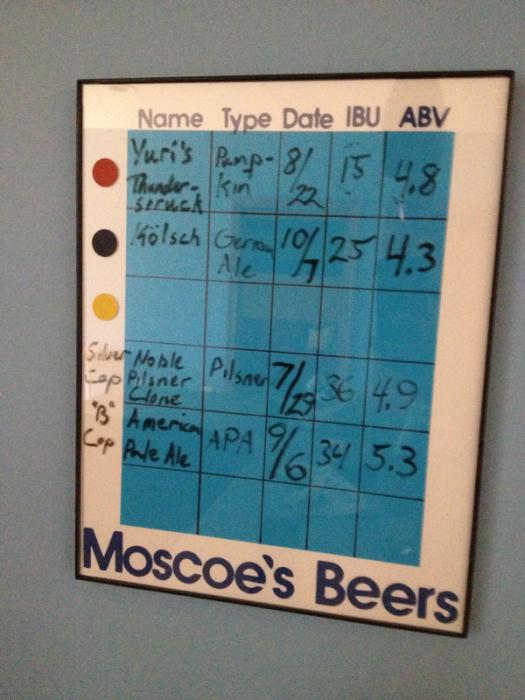 Name Type Date IBU ABV
Yuri's Pump- 8/ 15 4.8
Thunder- kin 22
struck
Kölsch German 10/ 25 4.3
Ale 7
Silver Noble Pilsner 7/ 36 4.9
Cap Pilsner 29
Clone
"B" American APA 9/ 34 5.3
Cap Pale Ale 6
Moscoe's Beers